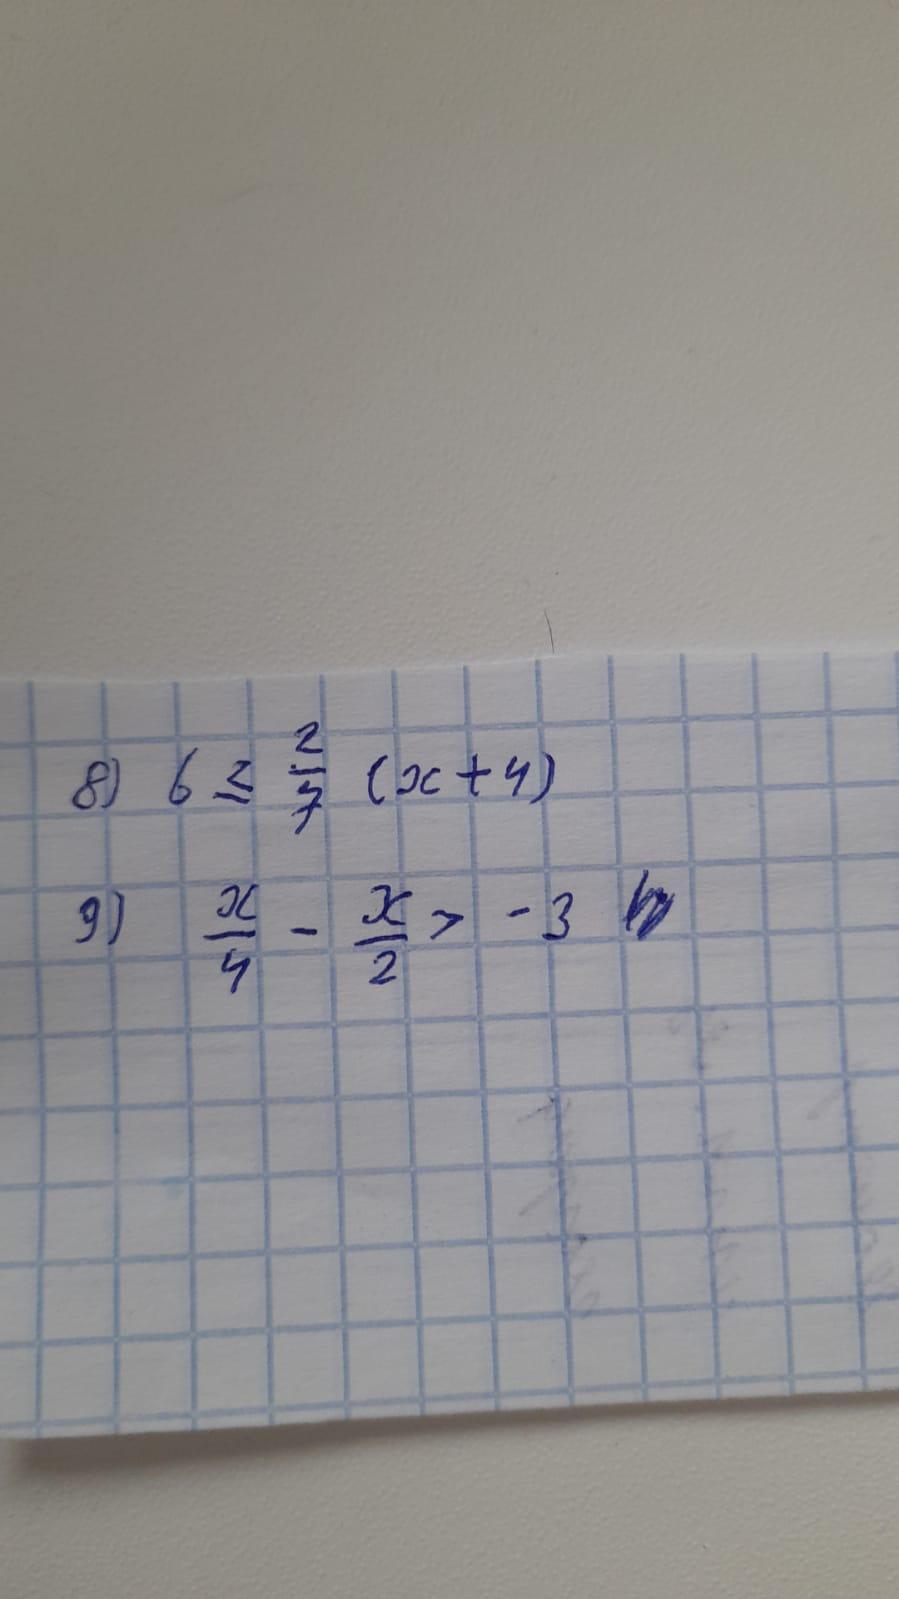 8) 6 ≥ 2/7 (x+4)
9) x/4 - x/2 > -3